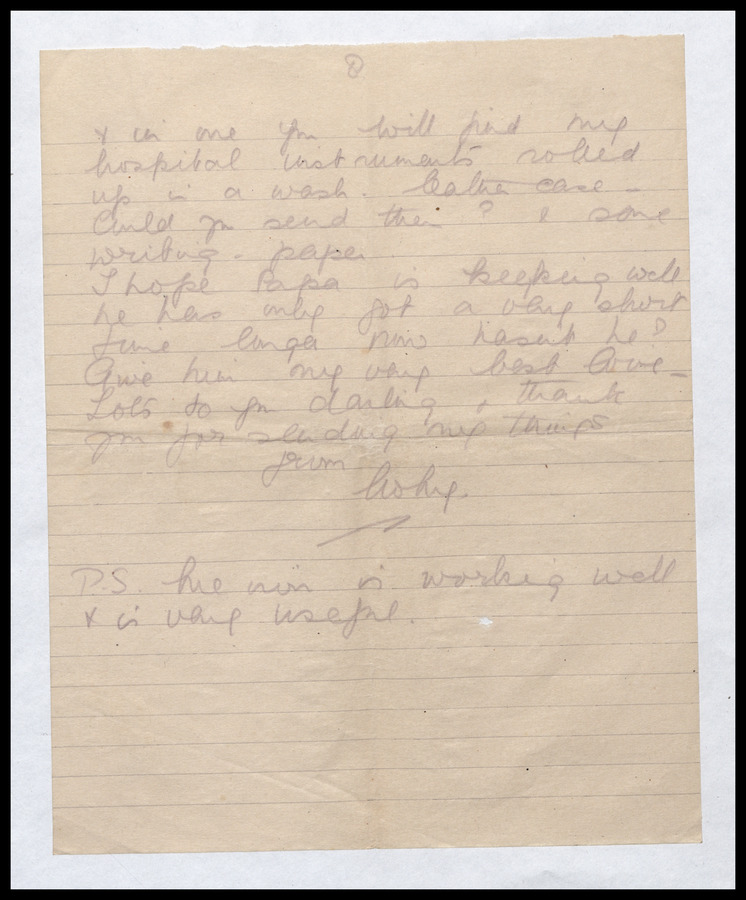 8
+ in one you will find my
hospital instruments rolled
up in a wash-leather case -
Could you send them? & some
writing-paper
I hope Papa is keeping well
he has only got a very short
time longer now hasn't he?
Give him my very best love -
Lots to you darling, & thank
you for sending my things
from
P.S. is working well
+ is very useful.